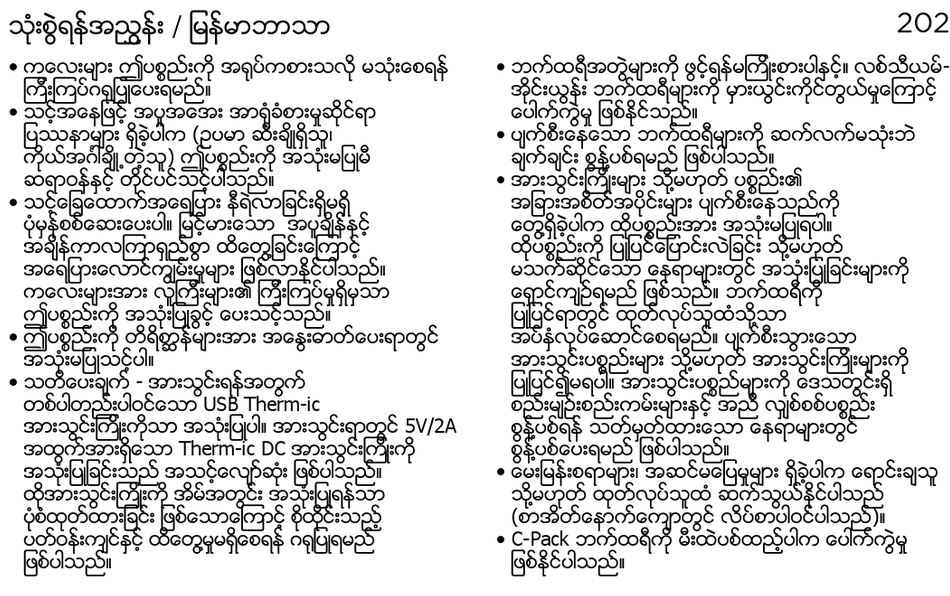 သုံးစွဲရန်အညွှန်း / မြန်မာဘာသာ
202
• ကလေးများ ဤပစ္စည်းကို အရုပ်ကစားသလို မသုံးစေရန်
ကြီးကြပ်ဂရုပြုပေးရမည်။
• သင့်အနေဖြင့် အပူအအေး အာရုံခံစားမှုဆိုင်ရာ
ပြဿနာများ ရှိခဲ့ပါက (ဥပမာ ဆီးချိုရှိသူ၊
ကိုယ်အင်္ဂါချို့တဲ့သူ) ဤပစ္စည်းကို အသုံးမပြုမီ
ဆရာဝန်နှင့် တိုင်ပင်သင့်ပါသည်။
• သင့်ခြေထောက်အရေပြား နီရဲလာခြင်းရှိမရှိ
ပုံမှန်စစ်ဆေးပေးပါ။ မြင့်မားသော အပူချိန်နှင့်
အချိန်ကာလကြာရှည်စွာ ထိတွေ့ခြင်းကြောင့်
အရေပြားလောင်ကျွမ်းမှုများ ဖြစ်လာနိုင်ပါသည်။
ကလေးများအား လူကြီးများ၏ ကြီးကြပ်မှုရှိမှသာ
ဤပစ္စည်းကို အသုံးပြုခွင့် ပေးသင့်သည်။
• ဤပစ္စည်းကို တိရိစ္ဆာန်များအား အနွေးဓာတ်ပေးရာတွင်
အသုံးမပြုသင့်ပါ။
• သတိပေးချက် - အားသွင်းရန်အတွက်
တစ်ပါတည်းပါဝင်သော USB Therm-ic
အားသွင်းကြိုးကိုသာ အသုံးပြုပါ။ အားသွင်းရာတွင် 5V/2A
အထွက်အားရှိသော Therm-ic DC အားသွင်းကြိုးကို
အသုံးပြုခြင်းသည် အသင့်လျော်ဆုံး ဖြစ်ပါသည်။
ထိုအားသွင်းကြိုးကို အိမ်အတွင်း အသုံးပြုရန်သာ
ပုံစံထုတ်ထားခြင်း ဖြစ်သောကြောင့် စိုထိုင်းသည့်
ပတ်ဝန်းကျင်နှင့် ထိတွေ့မှုမရှိစေရန် ဂရုပြုရမည်
ဖြစ်ပါသည်။
• ဘက်ထရီအတွဲများကို ဖွင့်ရန်မကြိုးစားပါနှင့်။ လစ်သီယမ်-
အိုင်းယွန်း ဘက်ထရီများကို မှားယွင်းကိုင်တွယ်မှုကြောင့်
ပေါက်ကွဲမှု ဖြစ်နိုင်သည်။
• ပျက်စီးနေသော ဘက်ထရီများကို ဆက်လက်မသုံးဘဲ
ချက်ချင်း စွန့်ပစ်ရမည် ဖြစ်ပါသည်။
• အားသွင်းကြိုးများ သို့မဟုတ် ပစ္စည်း၏
အခြားအစိတ်အပိုင်းများ ပျက်စီးနေသည်ကို
တွေ့ရှိခဲ့ပါက ထိုပစ္စည်းအား အသုံးမပြုရပါ။
ထိုပစ္စည်းကို ပြုပြင်ပြောင်းလဲခြင်း သို့မဟုတ်
မသက်ဆိုင်သော နေရာများတွင် အသုံးပြုခြင်းများကို
ရှောင်ကျဉ်ရမည် ဖြစ်သည်။ ဘက်ထရီကို
ပြုပြင်ရာတွင် ထုတ်လုပ်သူထံသို့သာ
အပ်နှံလုပ်ဆောင်စေရမည်။ ပျက်စီးသွားသော
အားသွင်းပစ္စည်းများ သို့မဟုတ် အားသွင်းကြိုးများကို
ပြုပြင်၍မရပါ။ အားသွင်းပစ္စည်များကို ဒေသတွင်းရှိ
စည်းမျဉ်းစည်းကမ်းများနှင့် အညီ လျှပ်စစ်ပစ္စည်း
စွန့်ပစ်ရန် သတ်မှတ်ထားသော နေရာများတွင်
စွန့်ပစ်ပေးရမည် ဖြစ်ပါသည်။
• မေးမြန်းစရာများ၊ အဆင်မပြေမှုများ ရှိခဲ့ပါက ရောင်းချသူ
သို့မဟုတ် ထုတ်လုပ်သူထံ ဆက်သွယ်နိုင်ပါသည်
(စာအိတ်နောက်ကျောတွင် လိပ်စာပါဝင်ပါသည်)။
• C-Pack ဘက်ထရီကို မီးထဲပစ်ထည့်ပါက ပေါက်ကွဲမှု
ဖြစ်နိုင်ပါသည်။